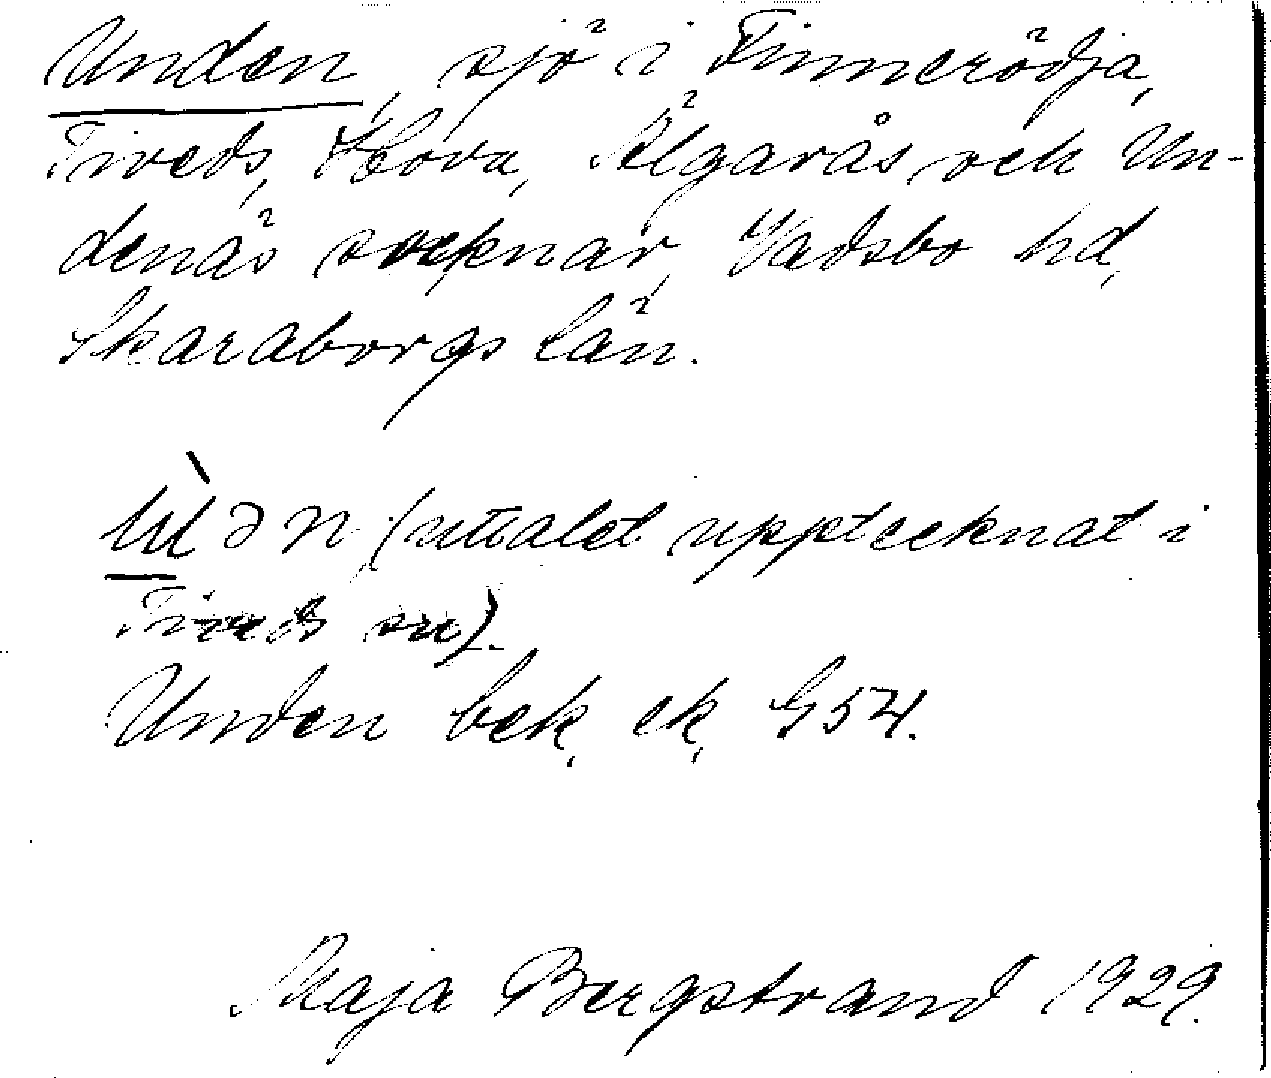 Unden, sjö i Finnerödja,
Tiveds, Hova, Älgarås och Un-
denäs socknar, Vadsbo hd,
Skaraborgs län.
(uttalet upptecknat i
Tiveds sn).
Unden bek, ek, G54.
Maja Bergstrand 1929.